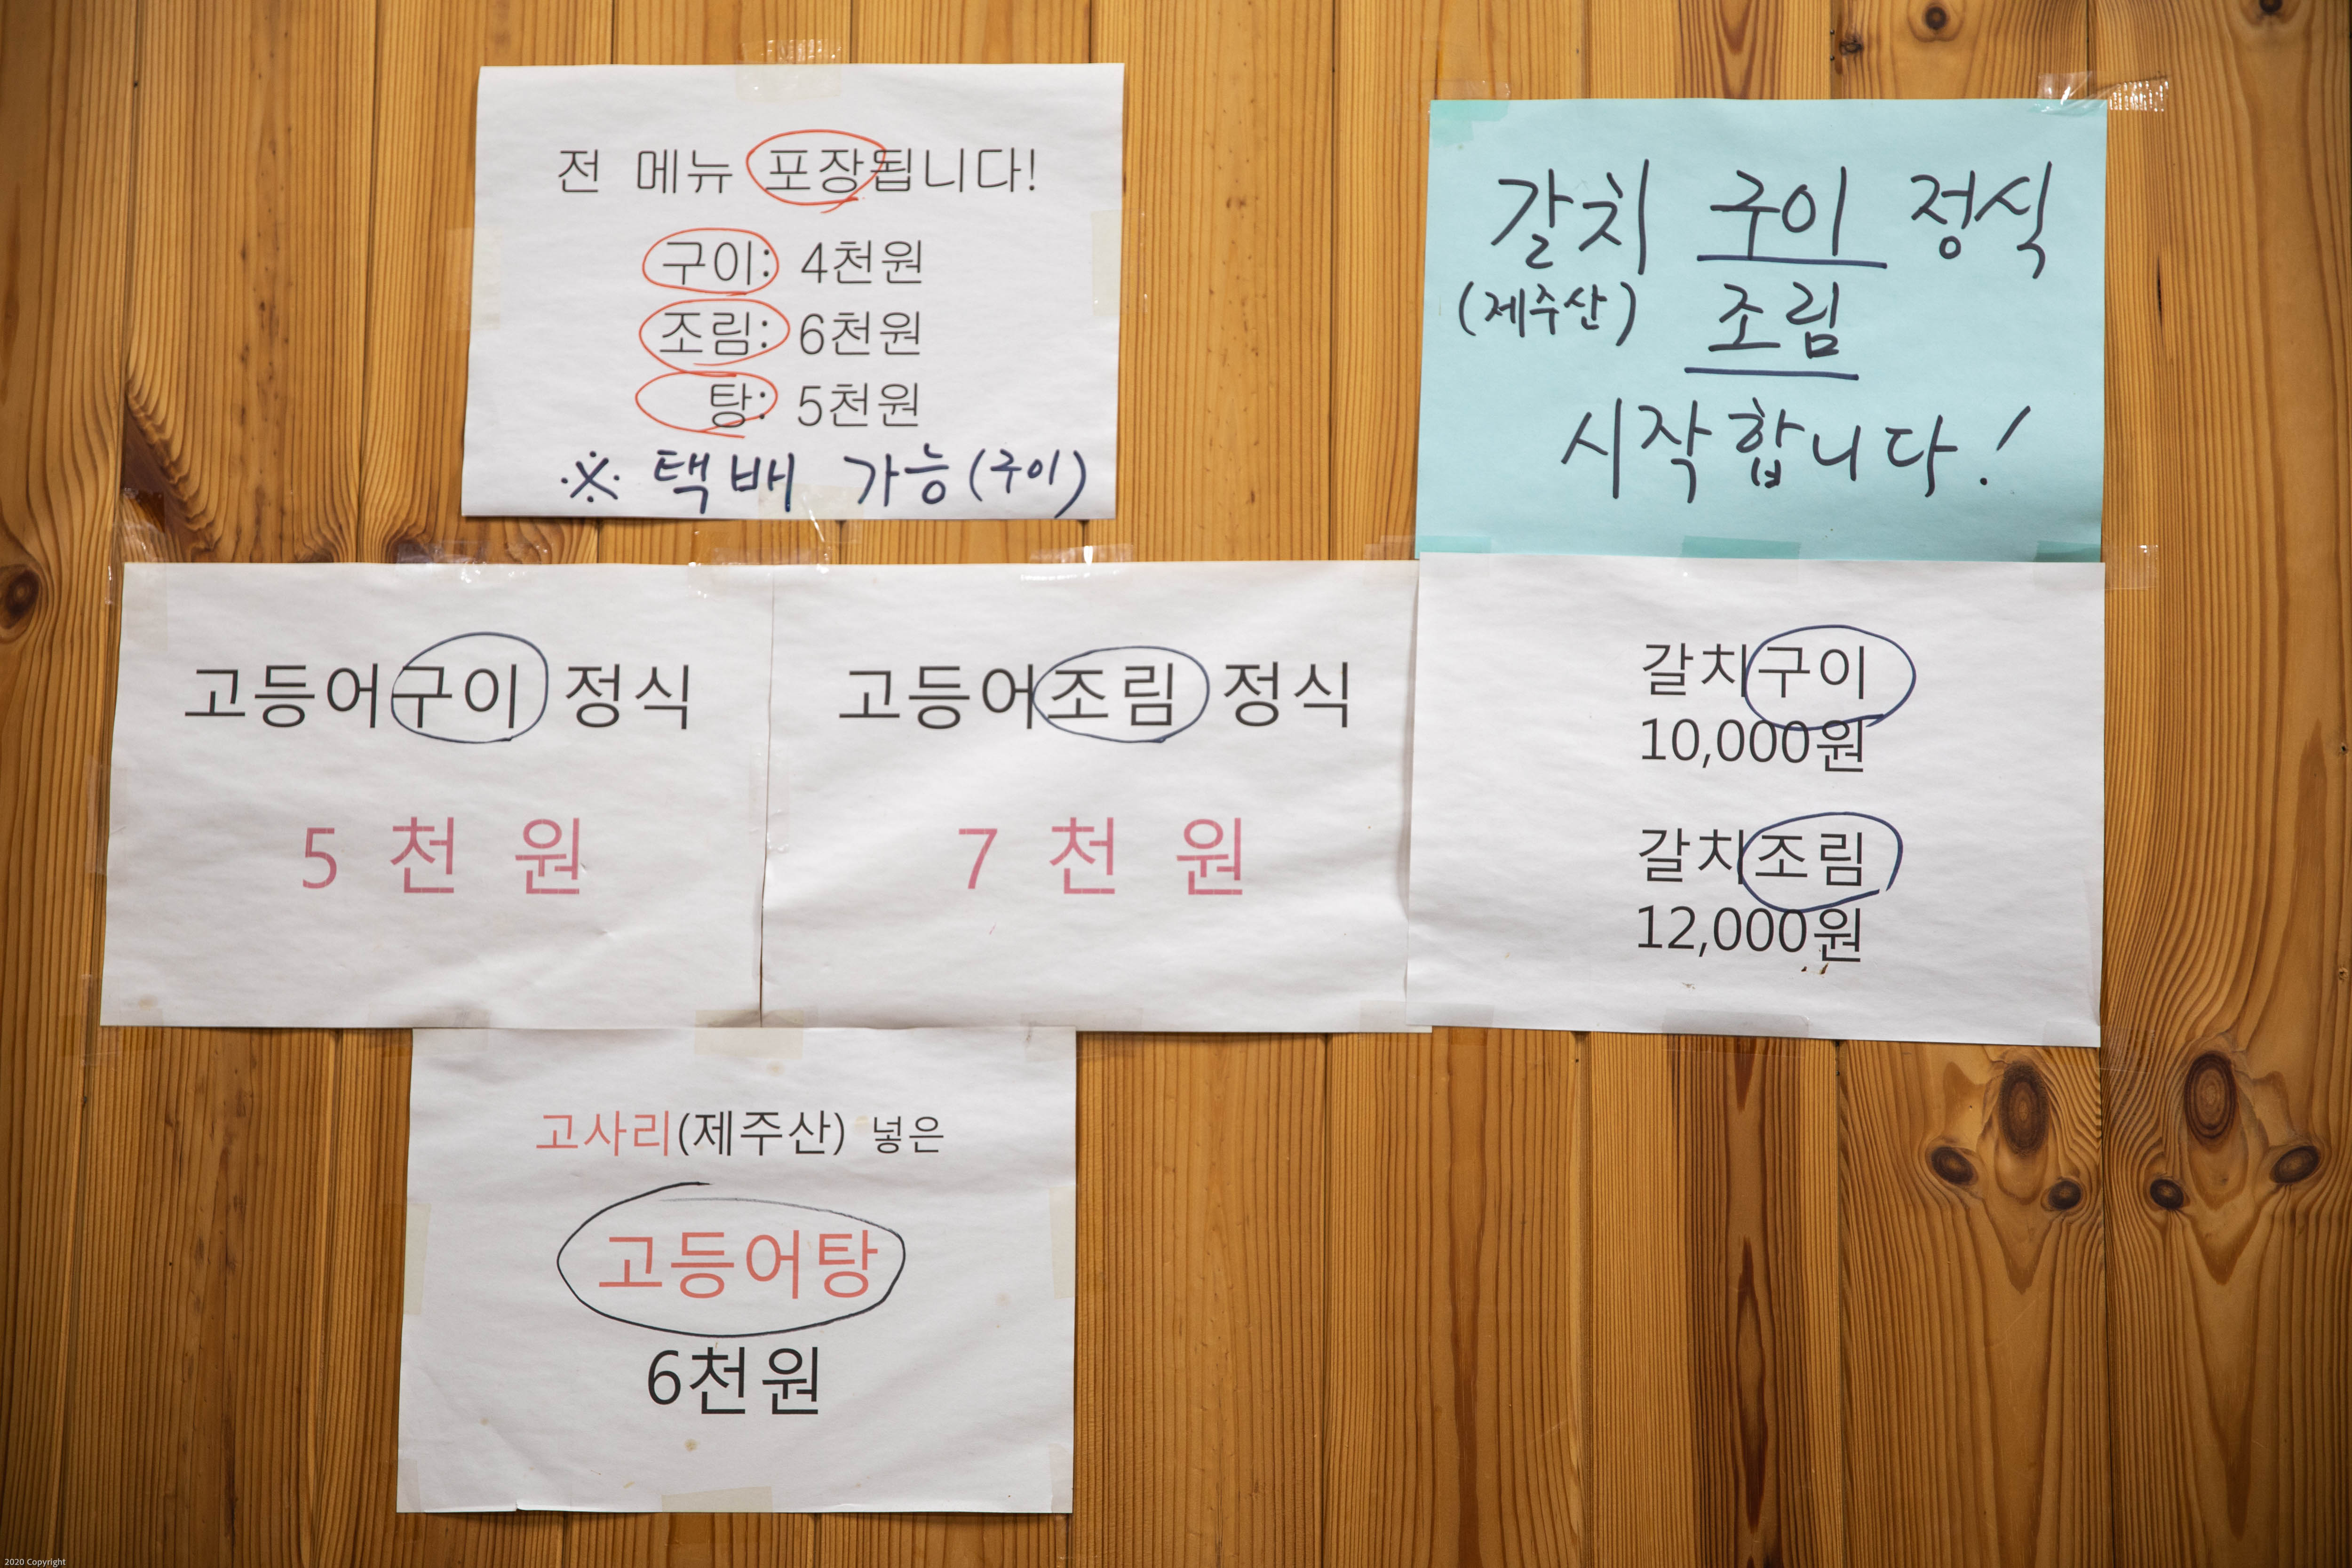 전 메뉴 포장됩니다!
구이: 4천원
조림: 6천원
탕: 5천원
※ 택배 가능(구이)
갈치 구이 정식
(제주산) 조림
시작합니다!
고등어구이 정식
5 천 원
고등어조림 정식
7 천 원
갈치구이
10,000원
갈치조림
12,000원
고사리(제주산) 넣은
고등어탕
6천원
2020 Copyright